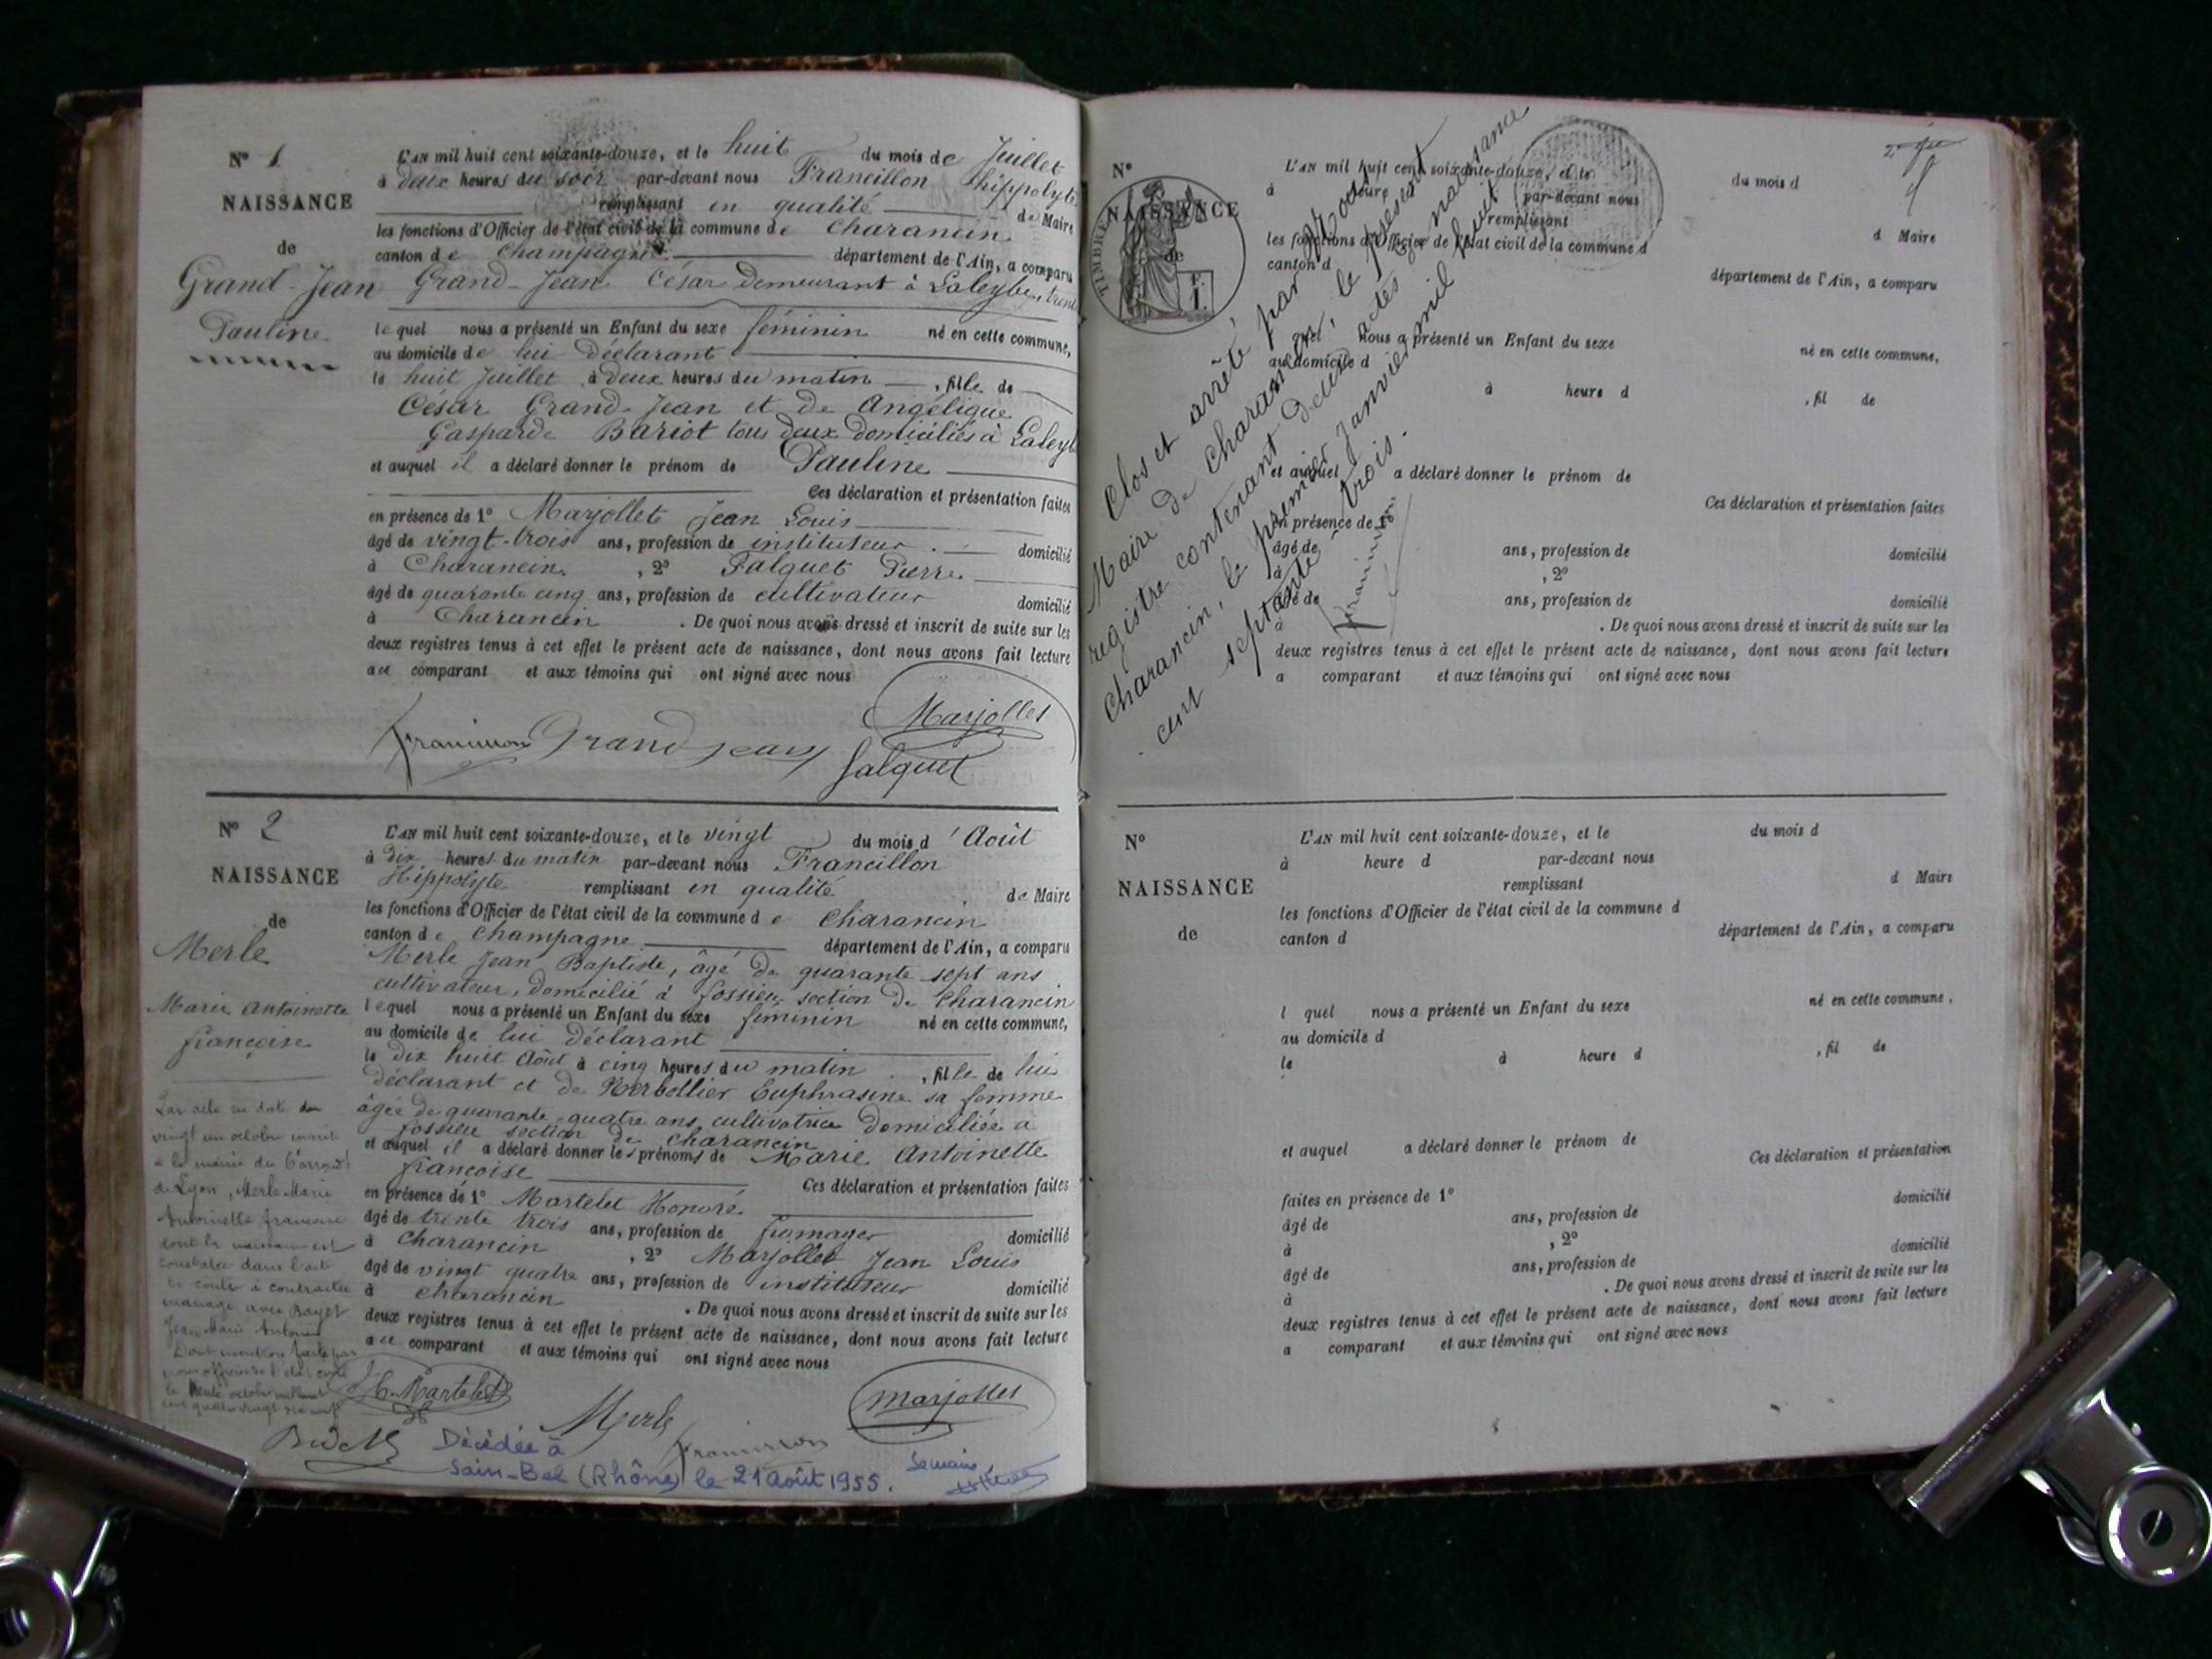 N° 1
NAISSANCE
de
Grand-Jean
Pauline
L'AN mil huit cent soixante-douze, et le huit du mois de Juillet
à deux heures du soir par-devant nous Francillon hippolyte
remplissant en qualité de Maire
les fonctions d'Officier de l'état civil de la commune de Charancin
canton de Champagne département de l'Ain, a comparu
Grand-Jean César demeurant à Laleybe, trente
lequel nous a présenté un Enfant du sexe féminin né en cette commune,
au domicile de lui déclarant
le huit Juillet à deux heures du matin, fille de
César Grand-Jean et de Angélique
Gasparde Bariot tous deux domiciliés à
et auquel il a déclaré donner le prénom de Pauline
Ces déclaration et présentation faites
en présence de 1° Marjollet Jean Louis
âgé de vingt-trois ans, profession de instituteur domicilié
à Charancin, 2° Falquet Pierre
âgé de quarante cinq ans, profession de cultivateur domicilié
à Charancin. De quoi nous avons dressé et inscrit de suite sur les
deux registres tenus à cet effet le présent acte de naissance, dont nous avons fait lecture
au comparant et aux témoins qui ont signé avec nous
Marjollet
Francillon Grand Jean
falquet
N° 2
NAISSANCE
de
Merle
Marie Antoinette
françoise
L'AN mil huit cent soixante-douze, et le vingt du mois d'Août
à dix heures du matin par-devant nous Francillon
Hippolyte remplissant en qualité de Maire
les fonctions d'Officier de l'état civil de la commune de Charancin
canton de Champagne département de l'Ain, a comparu
Merle Jean Baptiste, âgé de quarante sept ans
cultivateur, domicilié à fossieu section de Charancin
lequel nous a présenté un Enfant du sexe féminin né en cette commune,
au domicile de lui déclarant
le dix huit Août à cinq heures du matin, fille de lui
déclarant et de Euphrasine sa femme
âgée de quarante-quatre ans, cultivatrice domiciliée à
fossieu section de Charancin
et auquel il a déclaré donner les prénoms de Marie Antoinette
françoise Ces déclaration et présentation faites
en présence de 1° Martelet Honoré
âgé de trente trois ans, profession de fromager domicilié
à Charancin, 2° Marjollet Jean Louis
âgé de vingt quatre ans, profession de instituteur domicilié
à Charancin. De quoi nous avons dressé et inscrit de suite sur les
deux registres tenus à cet effet le présent acte de naissance, dont nous avons fait lecture
au comparant et aux témoins qui ont signé avec nous
Par acte en date du
vingt un octobre inscrit
à la mairie du 6e arrondt
de Lyon, Merle Marie
Antoinette francoise
dont la naissance est
constatée dans l'acte
ci contre à contracté
mariage avec
Jean Marie Antoine
Dont mention faite par
nous officier de l'état civil
le trente octobre mil huit
cent quatre vingt
H. Martelet
Merle
Marjollet
Francillon
Décédée à
Sain-Bel (Rhône) le 21 Août 1955.
N°
NAISSANCE
de
TIMBRE
L'AN mil huit cent soixante-douze, et le du mois d
à heure par-devant nous
remplissant d Maire
les fonctions d'Officier de l'état civil de la commune d
canton d département de l'Ain, a comparu
quel nous a présenté un Enfant du sexe né en cette commune,
au domicile d
à heure d, fil de
et auquel a déclaré donner le prénom de
Ces déclaration et présentation faites
en présence de 1°
âgé de ans, profession de domicilié
à, 2°
âgé de ans, profession de domicilié
à. De quoi nous avons dressé et inscrit de suite sur les
deux registres tenus à cet effet le présent acte de naissance, dont nous avons fait lecture
a comparant et aux témoins qui ont signé avec nous
Clos et arrêté par nous
Maire de Charancin, le présent
registre contenant deux actes de naissance
Charancin, le premier Janvier mil huit
cent septante trois.
Francillon
N°
NAISSANCE
de
L'AN mil huit cent soixante-douze, et le du mois d
à heure d par-devant nous
remplissant d Maire
les fonctions d'Officier de l'état civil de la commune d
canton d département de l'Ain, a comparu
l quel nous a présenté un Enfant du sexe né en cette commune,
au domicile d
le à heure d, fil de
et auquel a déclaré donner le prénom de
Ces déclaration et présentation
faites en présence de 1° domicilié
âgé de ans, profession de
à, 2° domicilié
âgé de ans, profession de
à. De quoi nous avons dressé et inscrit de suite sur les
deux registres tenus à cet effet le présent acte de naissance, dont nous avons fait lecture
a comparant et aux témoins qui ont signé avec nous